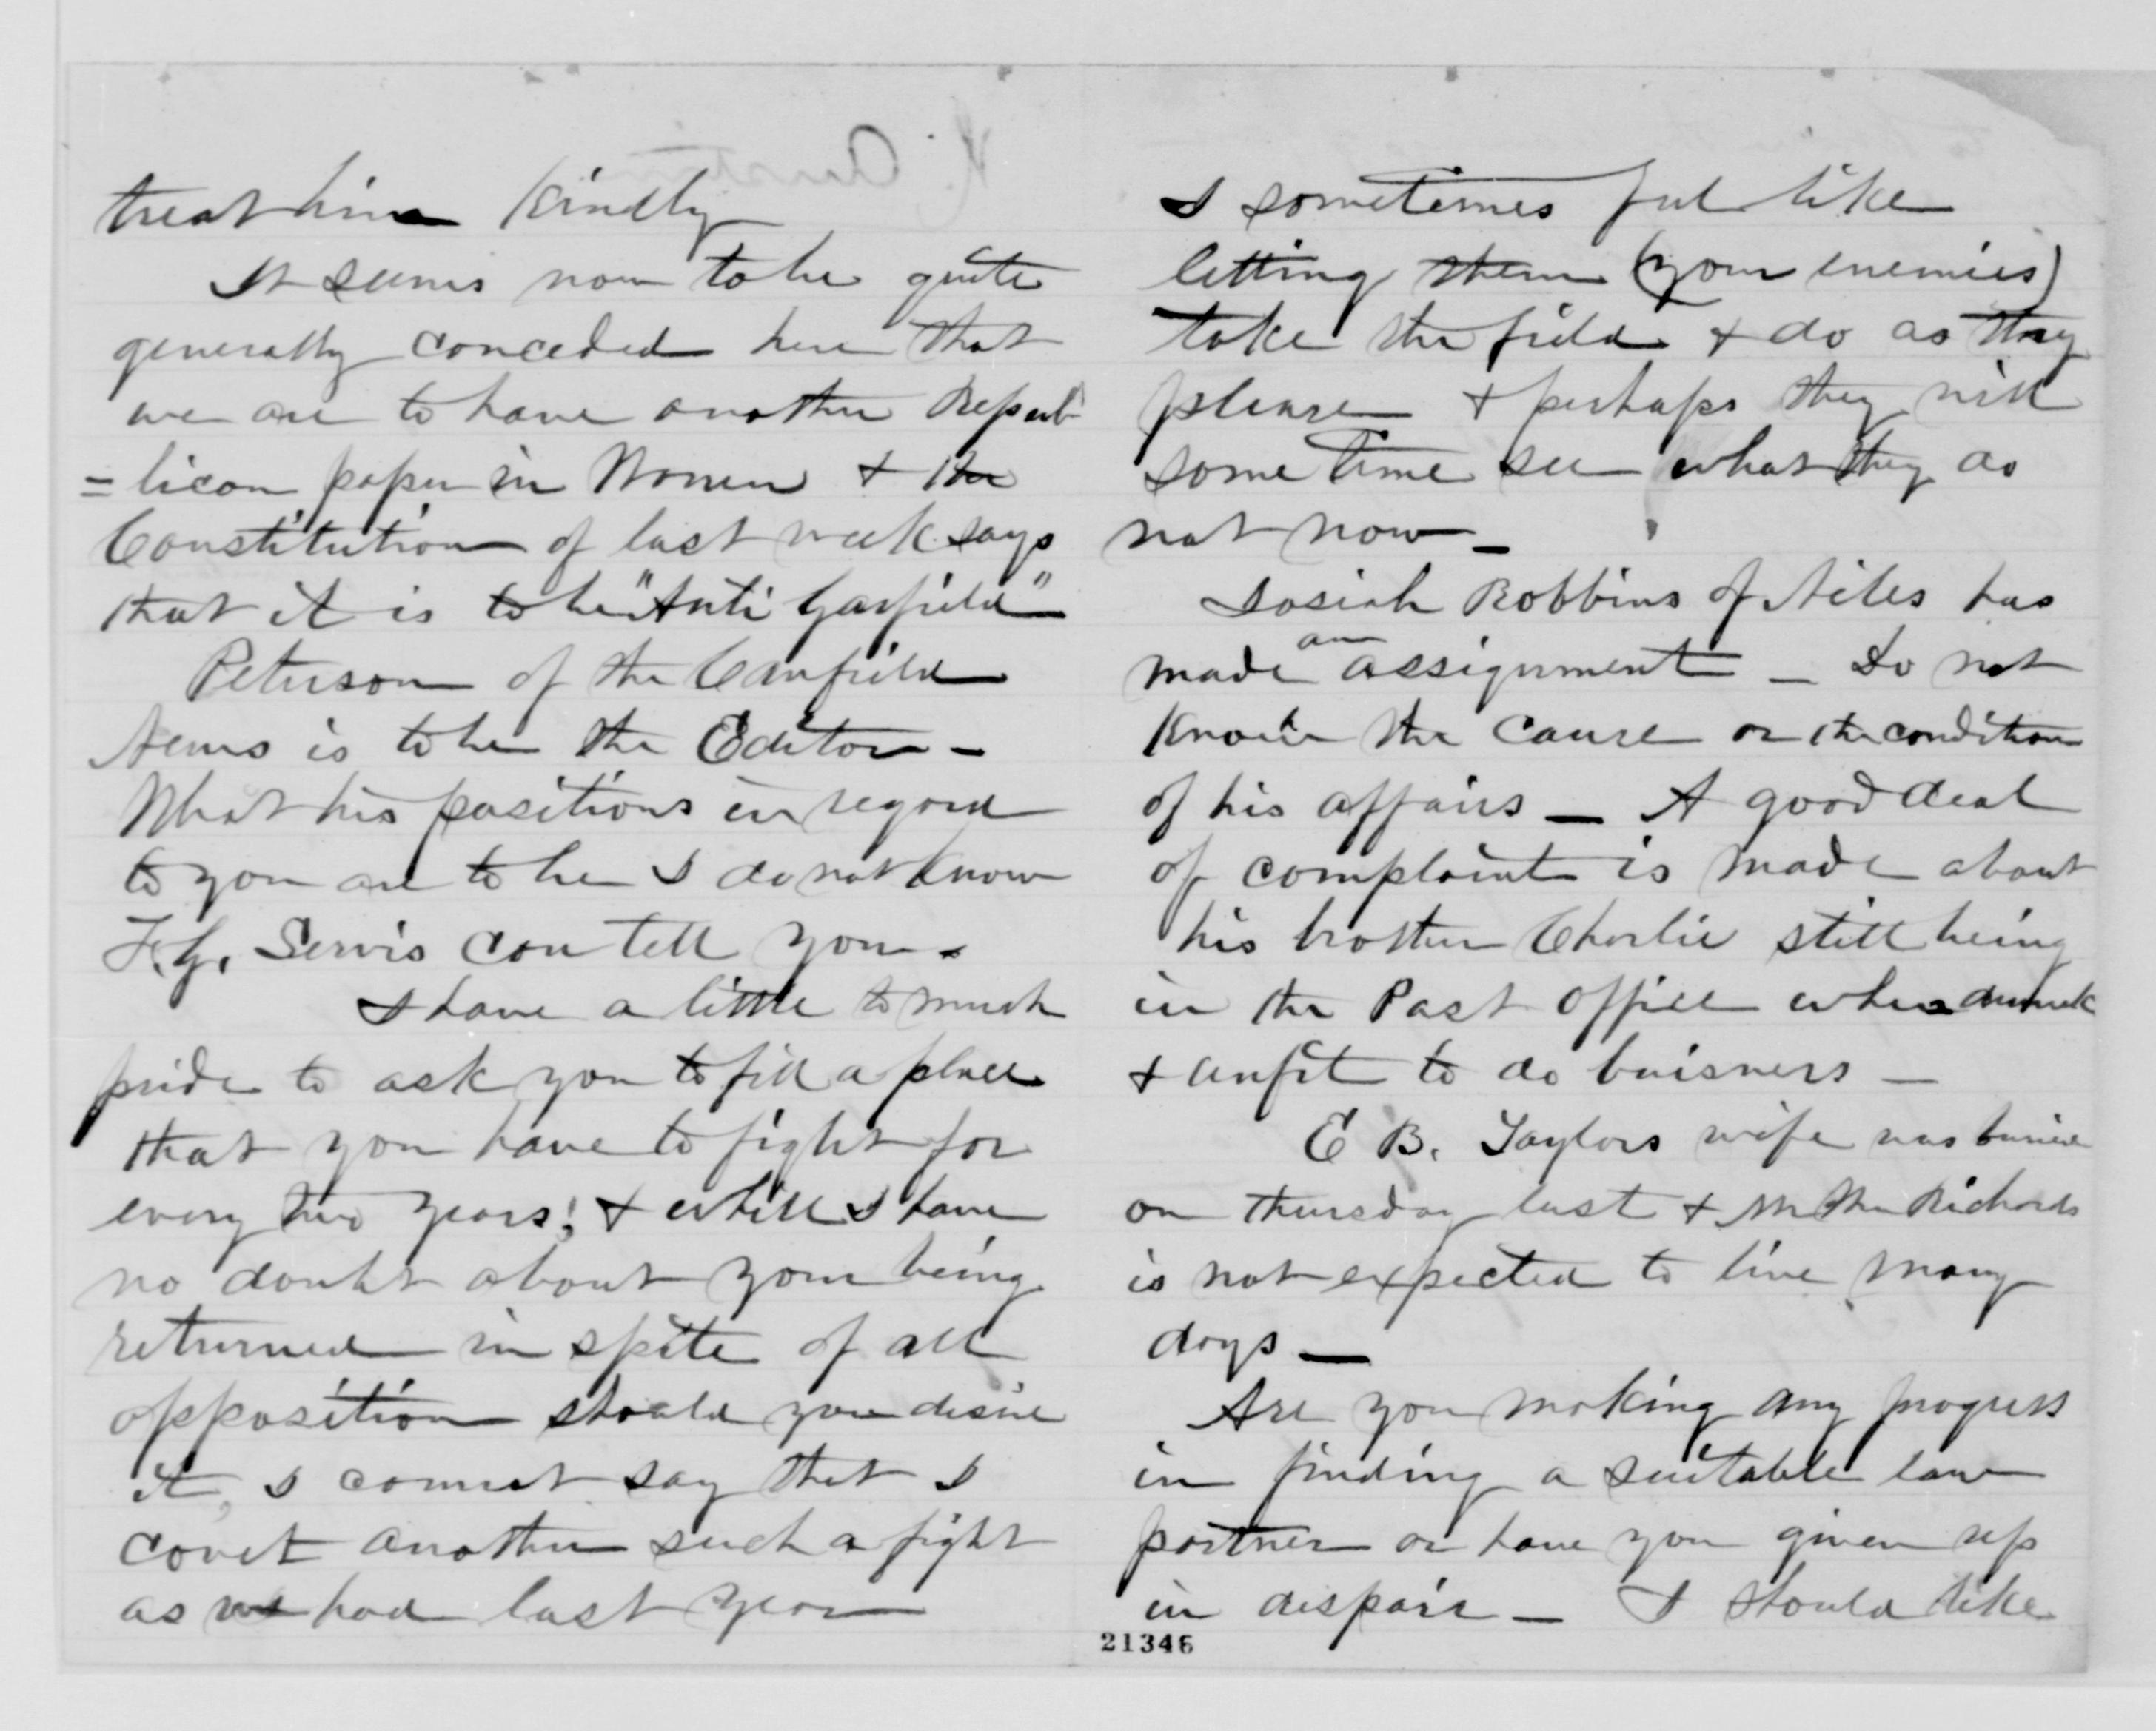 treat him kindly
It seems now to be quite
generally conceded here that
we are to have another Repub
= lican paper in Warren & the
Constitution of last week says
that it is to be "Anti Garfield"
Peterson of the Canfield
News is to be the Editor -
What his positions in regard
to you are to be I do not know
F.G. Servis can tell you -
I have a little to much
pride to ask you to fill a place
that you have to fight for
every two years; & while I have
no doubt about your being
returned in spite of all
opposition should you desire
it, I cannot say that I
covet another such a fight
as we had last year
I sometimes feel like
letting them (your enemies)
take the field & do as they
please & perhaps they will
some time see what they do
not now -
Josiah Robbins of Niles has
made an assignment - Do not
know the cause or the condition
of his affairs - A good deal
of complaint is made about
his brother Charlie still being
in the Post Office when drunk
& unfit to do buisness -
E B. Taylors wife was buried
on Thursday last & Mother Richards
is not expected to live many
days -
Are you making any progress
in finding a suitable law
partner or have you given up
in dispair - I should like
21346